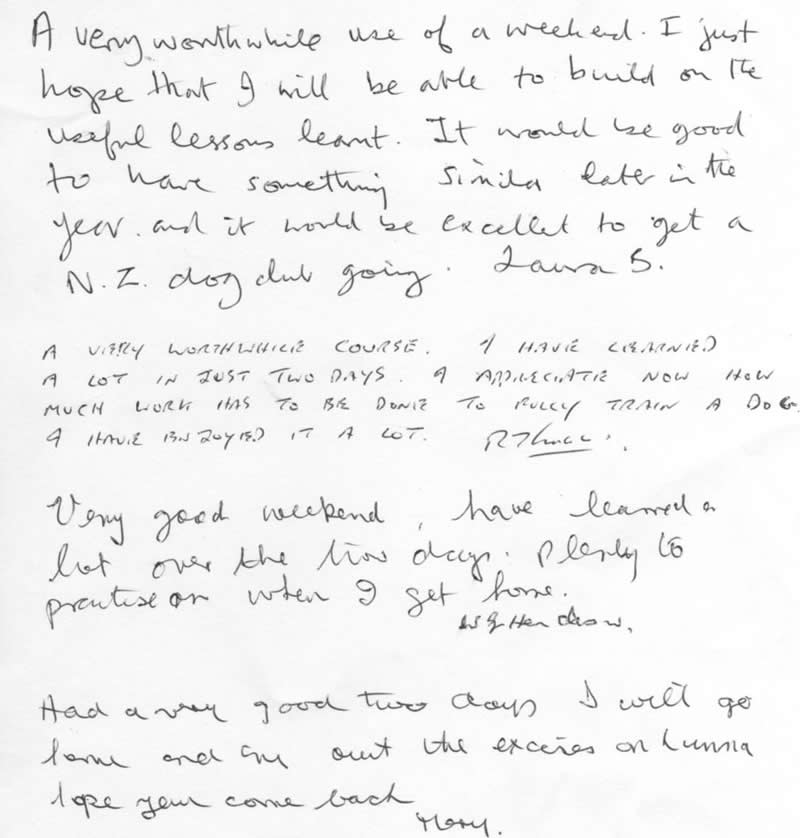 A very worthwhile use of a weekend. I just
hope that I will be able to build on the
useful lessons learnt. It would be good
to have something similar later in the
year. and it would be excellet to get a
N.Z. dog club going. Laura S.
A VERY WORTHWHILE COURSE. I HAVE LEARNED
A LOT IN JUST TWO DAYS. I APPRECIATE NOW HOW
MUCH WORK HAS TO BE DONE TO FULLY TRAIN A DOG.
I HAVE ENJOYED IT A LOT.
Very good weekend, have learned a
lot over the two days. Plenty to
practise on when I get home.
Had a very good two days I will go
home and out the exercises on
hope you come back
Mary.